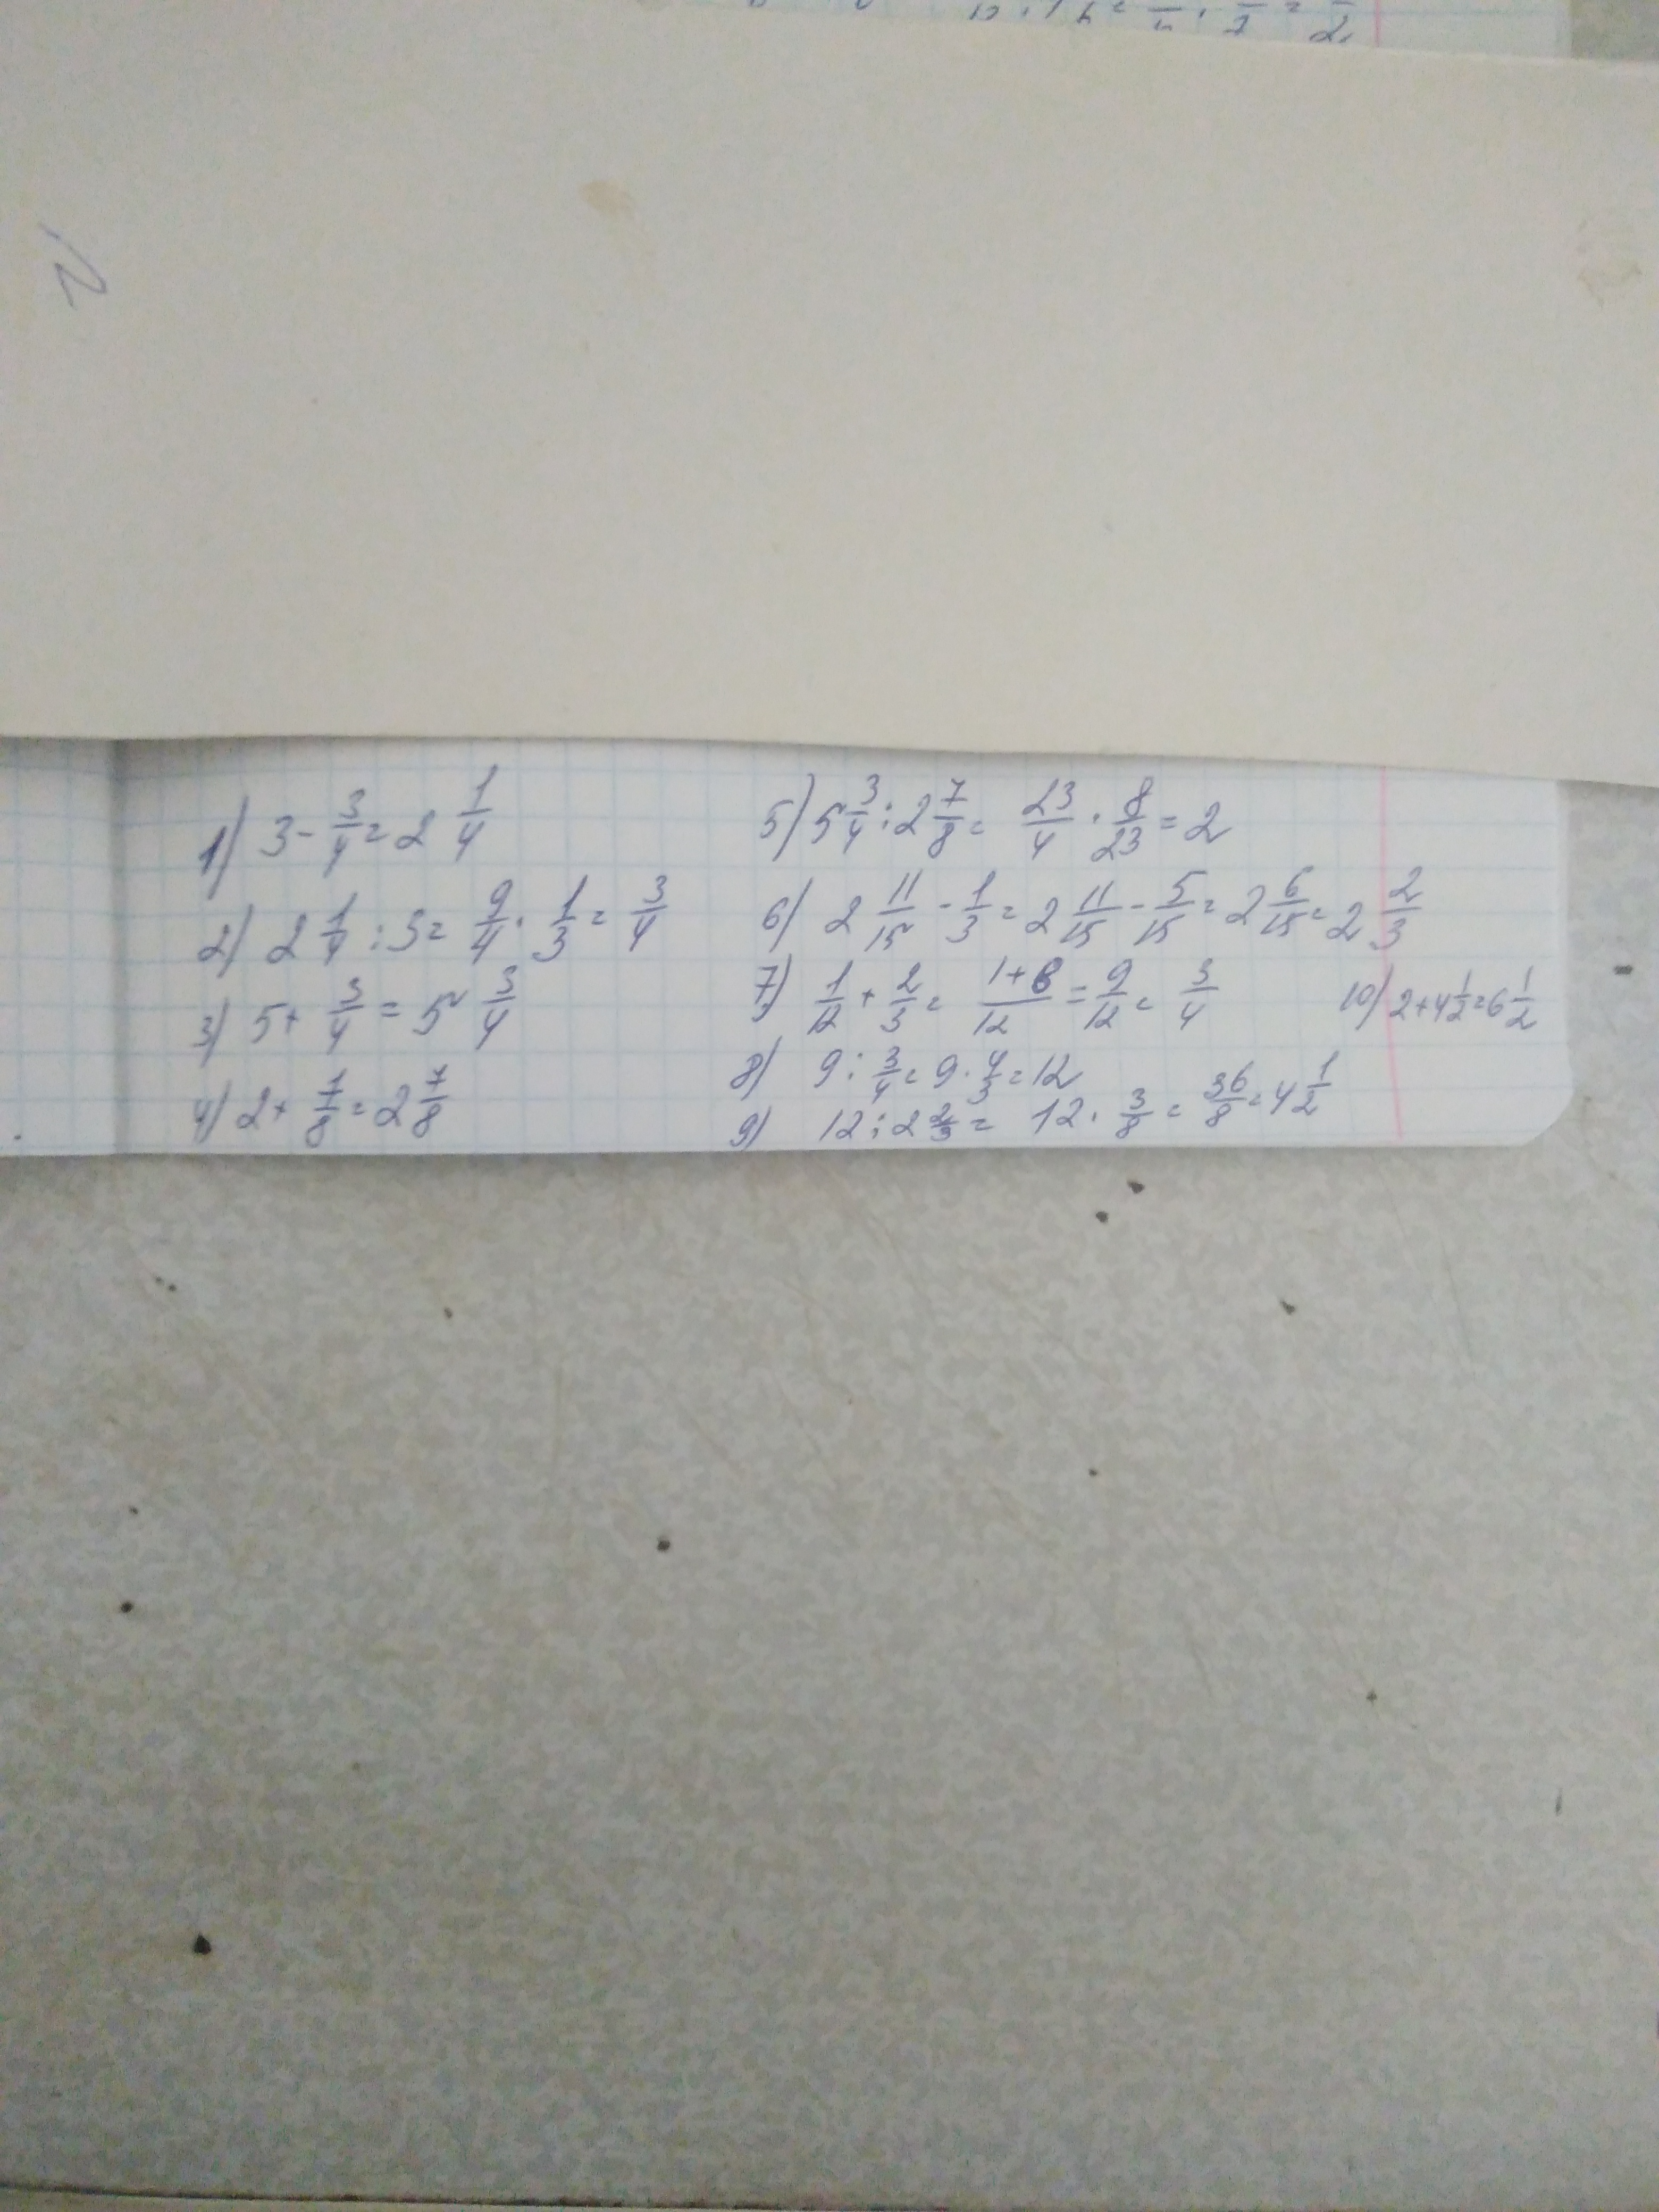 1) 3 - 3/4 = 2 1/4
2) 2 1/4 : 3 = 9/4 · 1/3 = 3/4
3) 5 + 3/4 = 5 3/4
4) 2 + 7/8 = 2 7/8
5) 5 3/4 : 2 7/8 = 23/4 · 8/23 = 2
6) 2 11/15 - 1/3 = 2 11/15 - 5/15 = 2 6/15 = 2 2/3
7) 1/12 + 2/3 = 1+8/12 = 9/12 = 3/4
8) 9 : 3/4 = 9 · 4/3 = 12
9) 12 : 2 2/3 = 12 · 3/8 = 36/8 = 4 1/2
10) 2 + 4 1/2 = 6 1/2